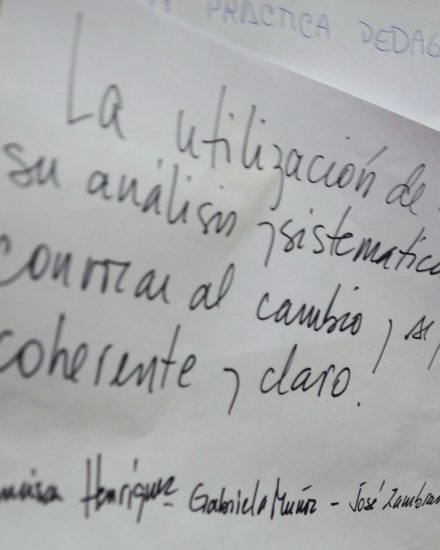 PRACTICA PEDAG
La utilización de
su análisis y sistematic
al cambio, si
coherente y claro.
Henríquez Gabriela Muñoz - José Zambran